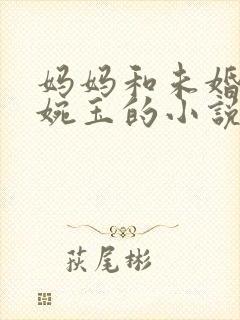 妈妈和未婚
婉玉的小説
萩尾彬